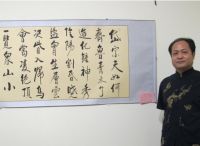 岱宗夫如何
齊魯青未了
造化鍾神秀
陰陽割昏曉
盪胸生層雲
決眥入歸鳥
會當凌絕頂
一覽眾山小